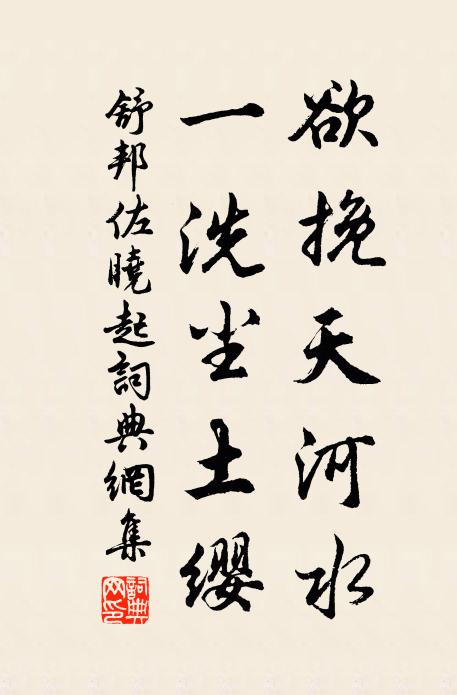 欲挽天河水
一洗尘土缨
舒邦佐曉起詞典網集
詞典
网印